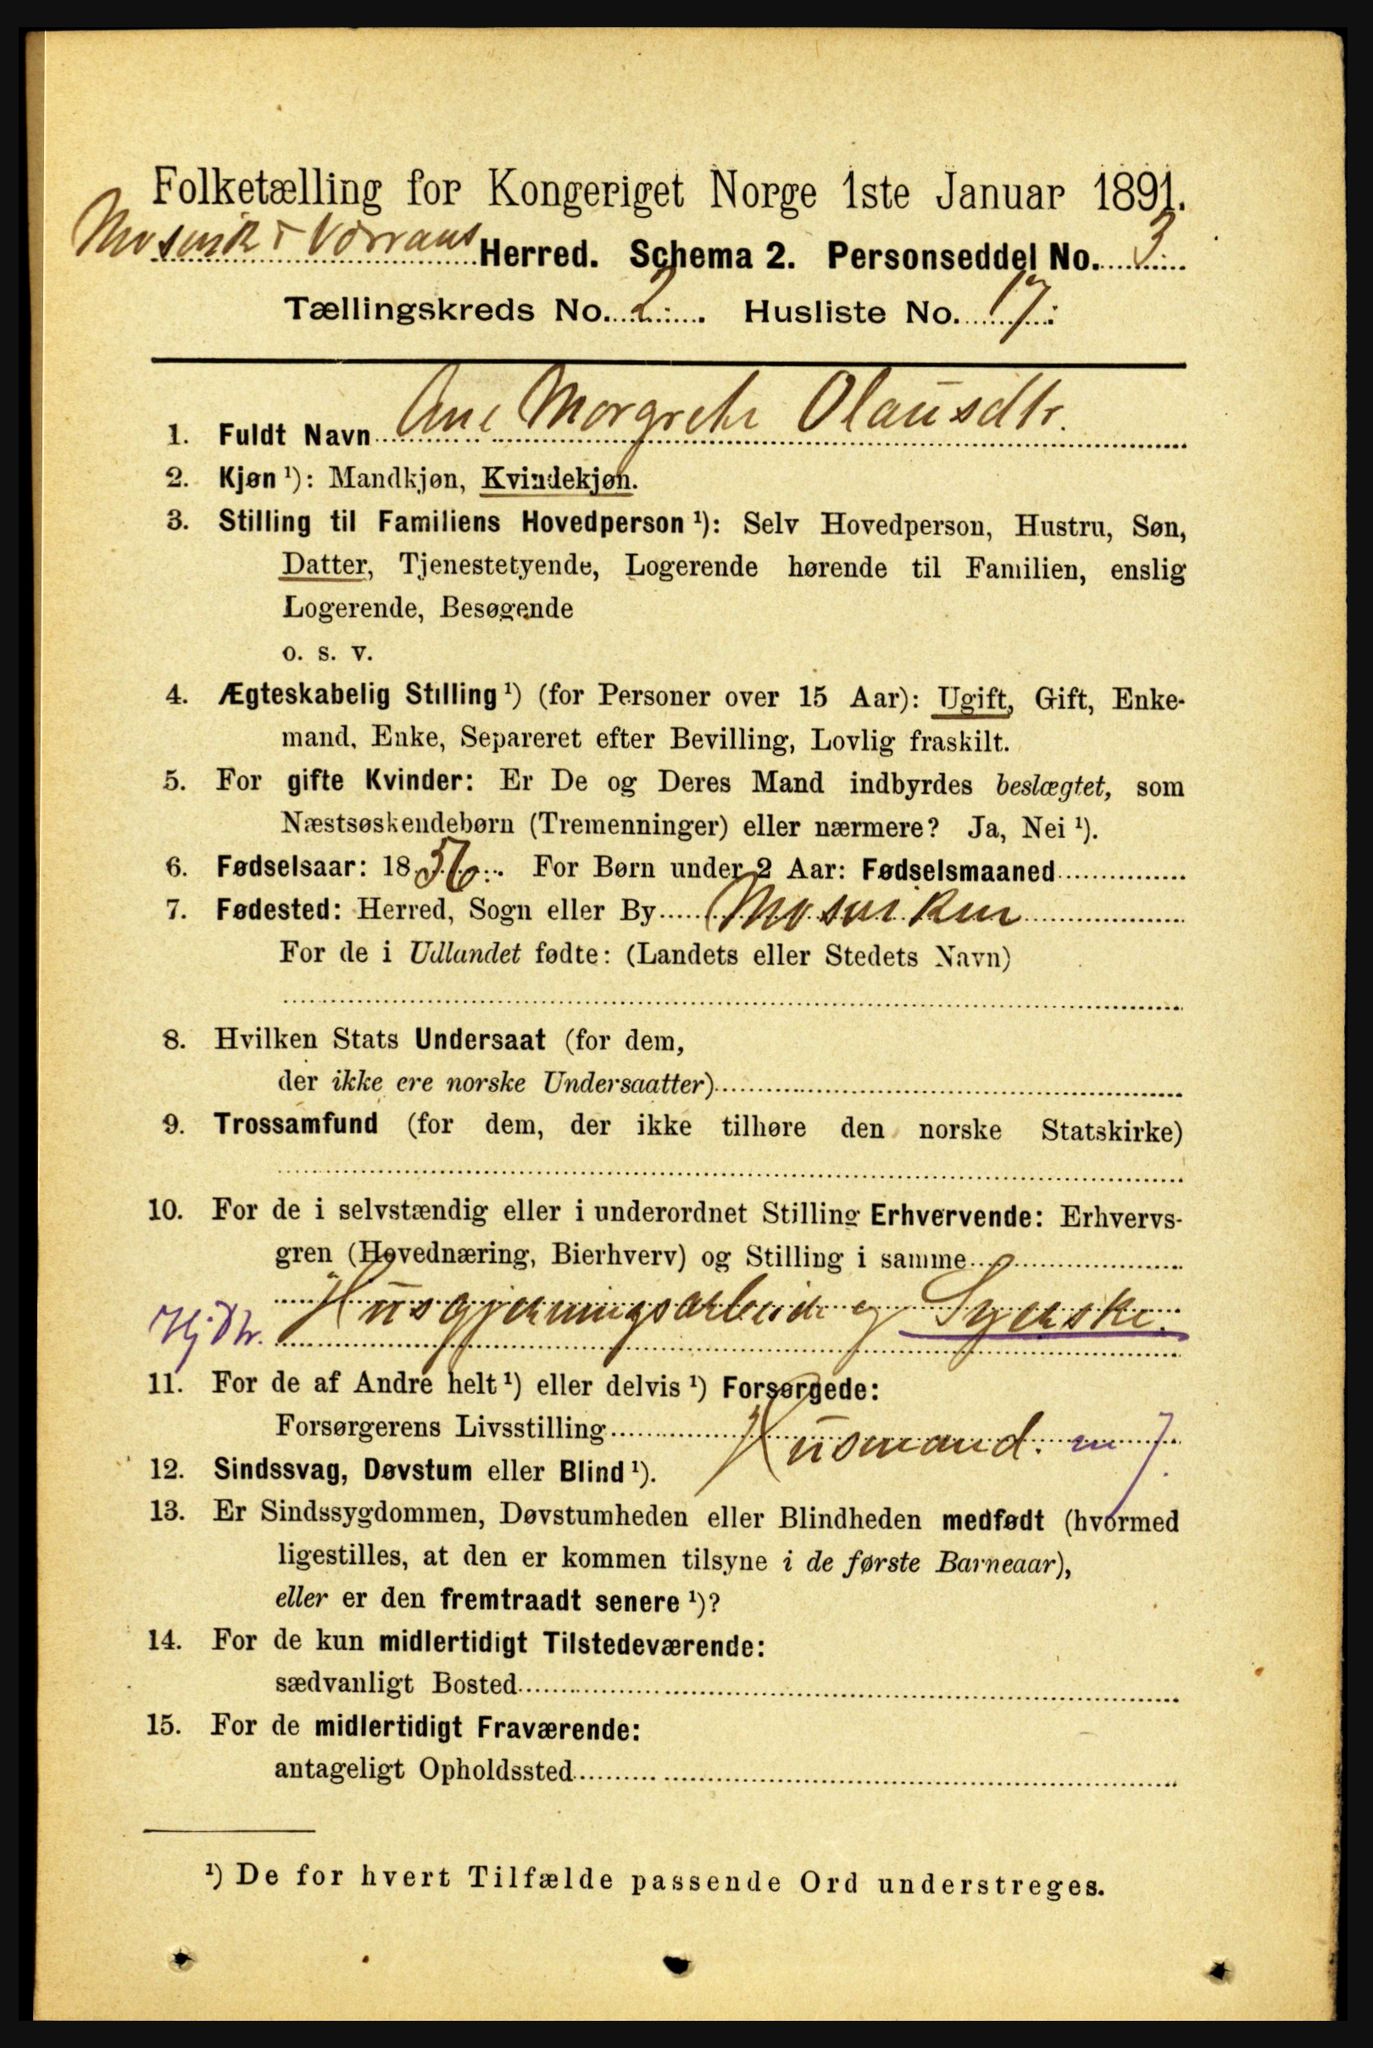 Folketælling for Kongeriget Norge 1ste Januar 1891.
Mosvik & Værrans Herred. Schema 2. Personseddel No. 3.
Tællingskreds No. 2. Husliste No. 17.
1. Fuldt Navn Ane Margrete Olausdtr.
2. Kjøn ¹): Mandkjøn, Kvindekjøn.
3. Stilling til Familiens Hovedperson ¹): Selv Hovedperson, Hustru, Søn,
Datter, Tjenestetyende, Logerende hørende til Familien, enslig
Logerende, Besøgende
o. s. v.
4. Ægteskabelig Stilling ¹) (for Personer over 15 Aar): Ugift, Gift, Enke-
mand, Enke, Separeret efter Bevilling, Lovlig fraskilt.
5. For gifte Kvinder: Er De og Deres Mand indbyrdes beslægtet, som
Næstsøskendebørn (Tremenninger) eller nærmere? Ja, Nei ¹).
6. Fødselsaar: 1856. For Børn under 2 Aar: Fødselsmaaned
7. Fødested: Herred, Sogn eller By Mosviken
For de i Udlandet fødte: (Landets eller Stedets Navn)
8. Hvilken Stats Undersaat (for dem,
der ikke ere norske Undersaatter)
9. Trossamfund (for dem, der ikke tilhøre den norske Statskirke)
10. For de i selvstændig eller i underordnet Stilling Erhvervende: Erhvervs-
gren (Hovednæring, Bierhverv) og Stilling i samme
Husgjerningsarbeide og Syerske.
Hj. Dtr.
11. For de af Andre helt ¹) eller delvis ¹) Forsørgede:
Forsørgerens Livsstilling Husmand. m j.
12. Sindssvag, Døvstum eller Blind ¹).
13. Er Sindssygdommen, Døvstumheden eller Blindheden medfødt (hvormed
ligestilles, at den er kommen tilsyne i de første Barneaar),
eller er den fremtraadt senere ¹)?
14. For de kun midlertidigt Tilstedeværende:
sædvanligt Bosted
15. For de midlertidigt Fraværende:
antageligt Opholdssted
¹) De for hvert Tilfælde passende Ord understreges.